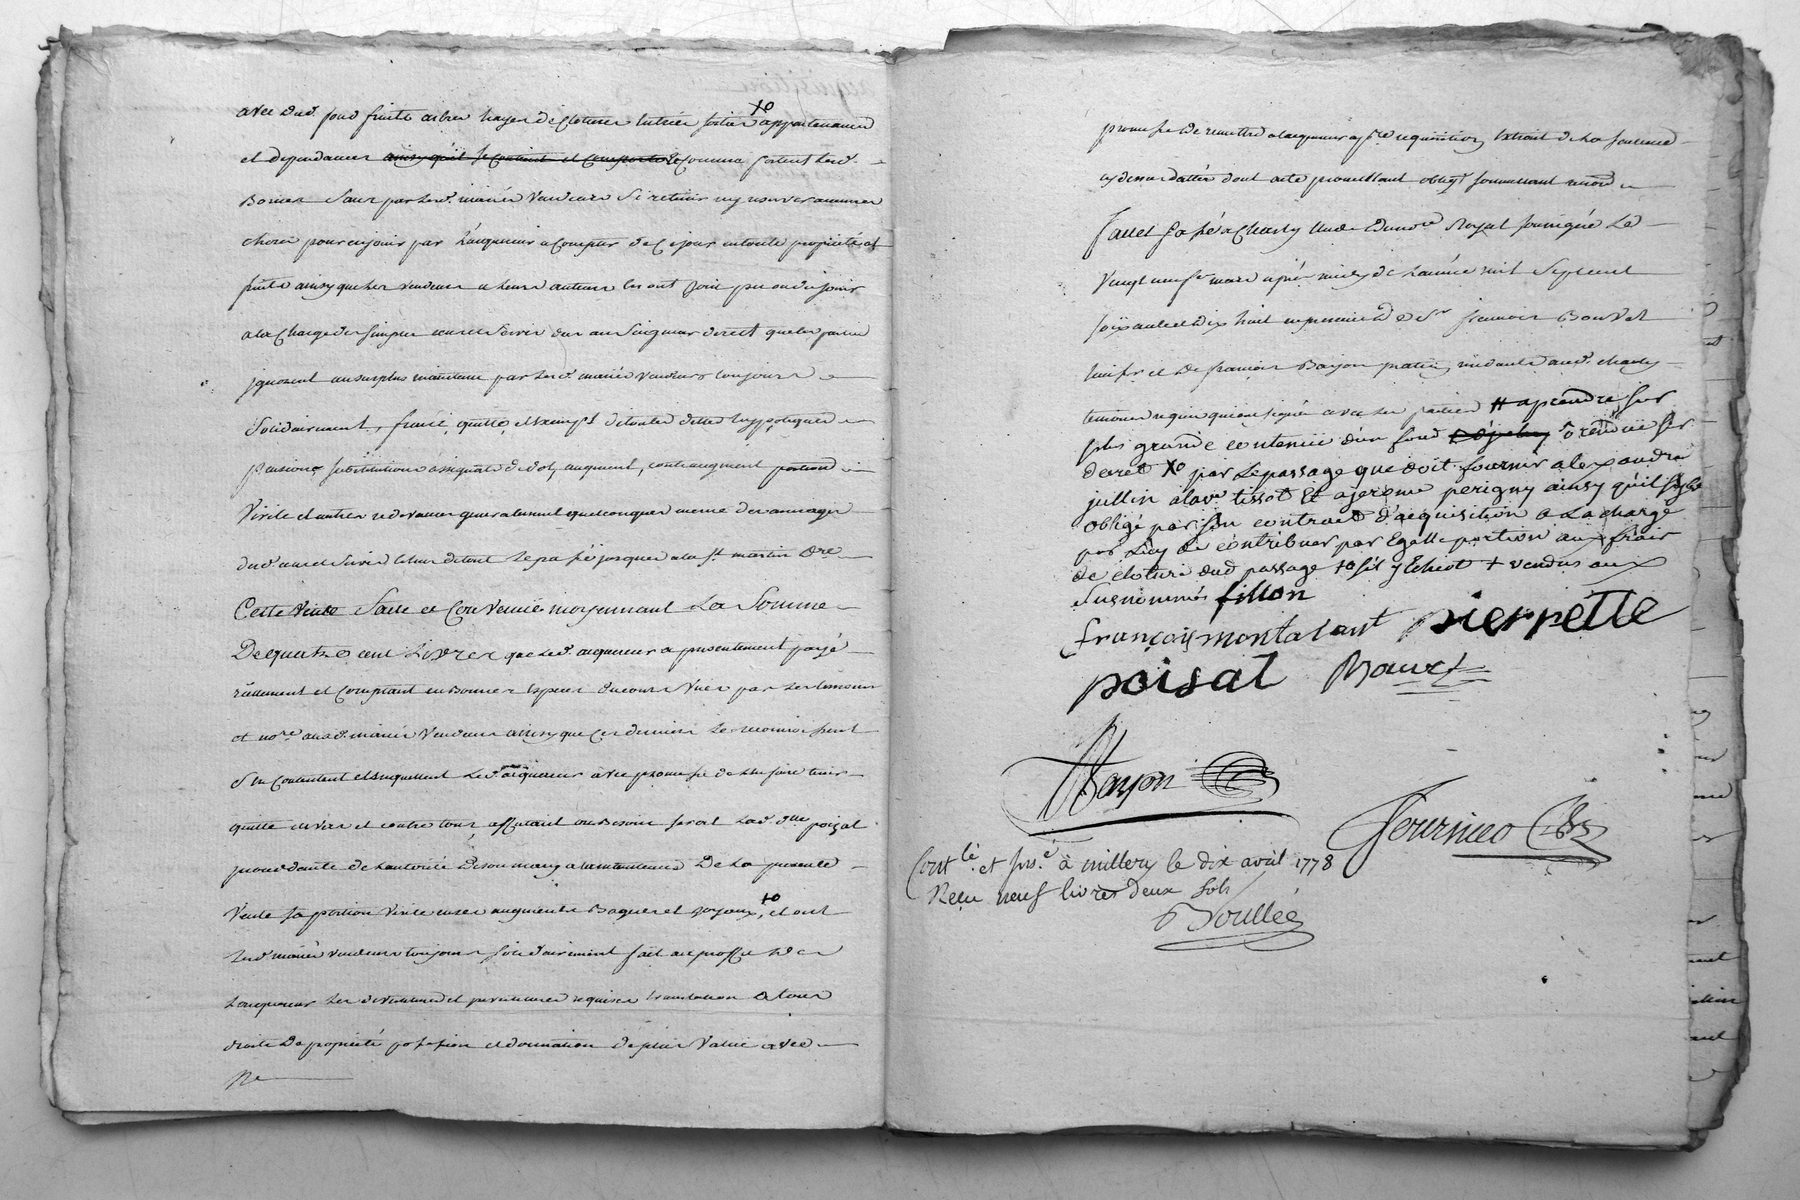 avec dud. fond fruits arbres hayes de cloture entrées sorties +o appartenances
et dependances ainsy qu'il se contient et comporte et comme sont led.
Bornes sans par led. mariés vendeurs s'y retenir ny reserver aucunes
choses pour en jouir par l'acquereur a compter de ce jour en toute proprieté et
fruits ainsy que les vendeurs et leurs auteurs en ont joui pu ou du jouir
a la charge des simples cens et servis dus au seigneur direct que les parties
ignorent au surplus maintenu par led. mariés vendeurs toujours
solidairement, franc, quitte, et exempt de toutes dettes hyppoteques
pensions substitutions assignats de dot, augment, contraugment portions
virile et autres redevances generalement quelconques meme des arrerages
dud. cens et servis et leur detout le passé jusques a la St martin dre
Cette vente faite et convenue moyennant La Somme
De quatre cent Livres que led. acquereur a presentement payé
réellement et comptant en bonnes especes du cours vues par les temoins
et nore. auxd. mariés vendeurs ainsy que ces derniers le reconnoissent
s'en contentent et en quittent led. acquereur avec promesse de l'en faire tenir
quitte envers et contre tous affectant au besoin serat lad. dlle poizat
procedante de l'autorité de son mary a la contenance De la presente
vente sa portion virile en ses augments Bagues et joyaux, +o et ont
led. mariés vendeurs toujours solidairement fait au proffit de
l'acquereur les devestitures et investitures requises translation de tous
droits de proprieté possession et donnation de plus value avec
Ne
promesse de remettre a l'acquereur a pre. requisition extrait de la sentence
cy dessus datée dont acte promettant obligt. soumettant renonc
fait et passé a Charly Etude du nore. Royal soussigné Le
vingt neuf mars après midy de l'année mil sept cent
soixante et dix huit en presence de Sr francois Bouvet
et de francois Bayon praticien residants aud. charly
temoins requis qui ont signé avec les parties # a prendre sur
plus grande contenüe d'un fond ô rendüe sur
decret +o par le passage que doit fournir alexandre
jullin a lave tissot et a jerome perigny ainsy qu'il s'y est
obligé par son contract d'acquisition a La charge
par Luy de contribuer par Egalle portion aux frais
de cloture dud passage +o s'il y Echeot + vendus aux
susnommés fillon
françois montalant pierrette
poisat Bouvet
Bayon
Fournereo
Contlé. et insé. à millery le dix avril 1778
Reçu neuf livres deux sols
Boullée